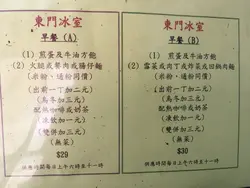 東門冰室
早餐 (A)
(1) 煎蛋及牛油方飽
(2) 火腿或餐肉或腸仔麵
(米粉、通粉同價)
(出前一丁加二元)
(烏冬加三元)
配熱咖啡或奶茶
(凍飲加一元)
(雙併加三元)
(無菜)
$29
供應時間每日上午六時至十一時
東門冰室
早餐 (B)
(1) 煎蛋及牛油方飽
(2) 雪菜或肉丁或炸菜或回鍋肉麵
(米粉、通粉同價)
(出前一丁加二元)
(烏冬加三元)
配熱咖啡或奶茶
(凍飲加一元)
(雙併加三元)
(無菜)
$30
供應時間每日上午六時至十一時